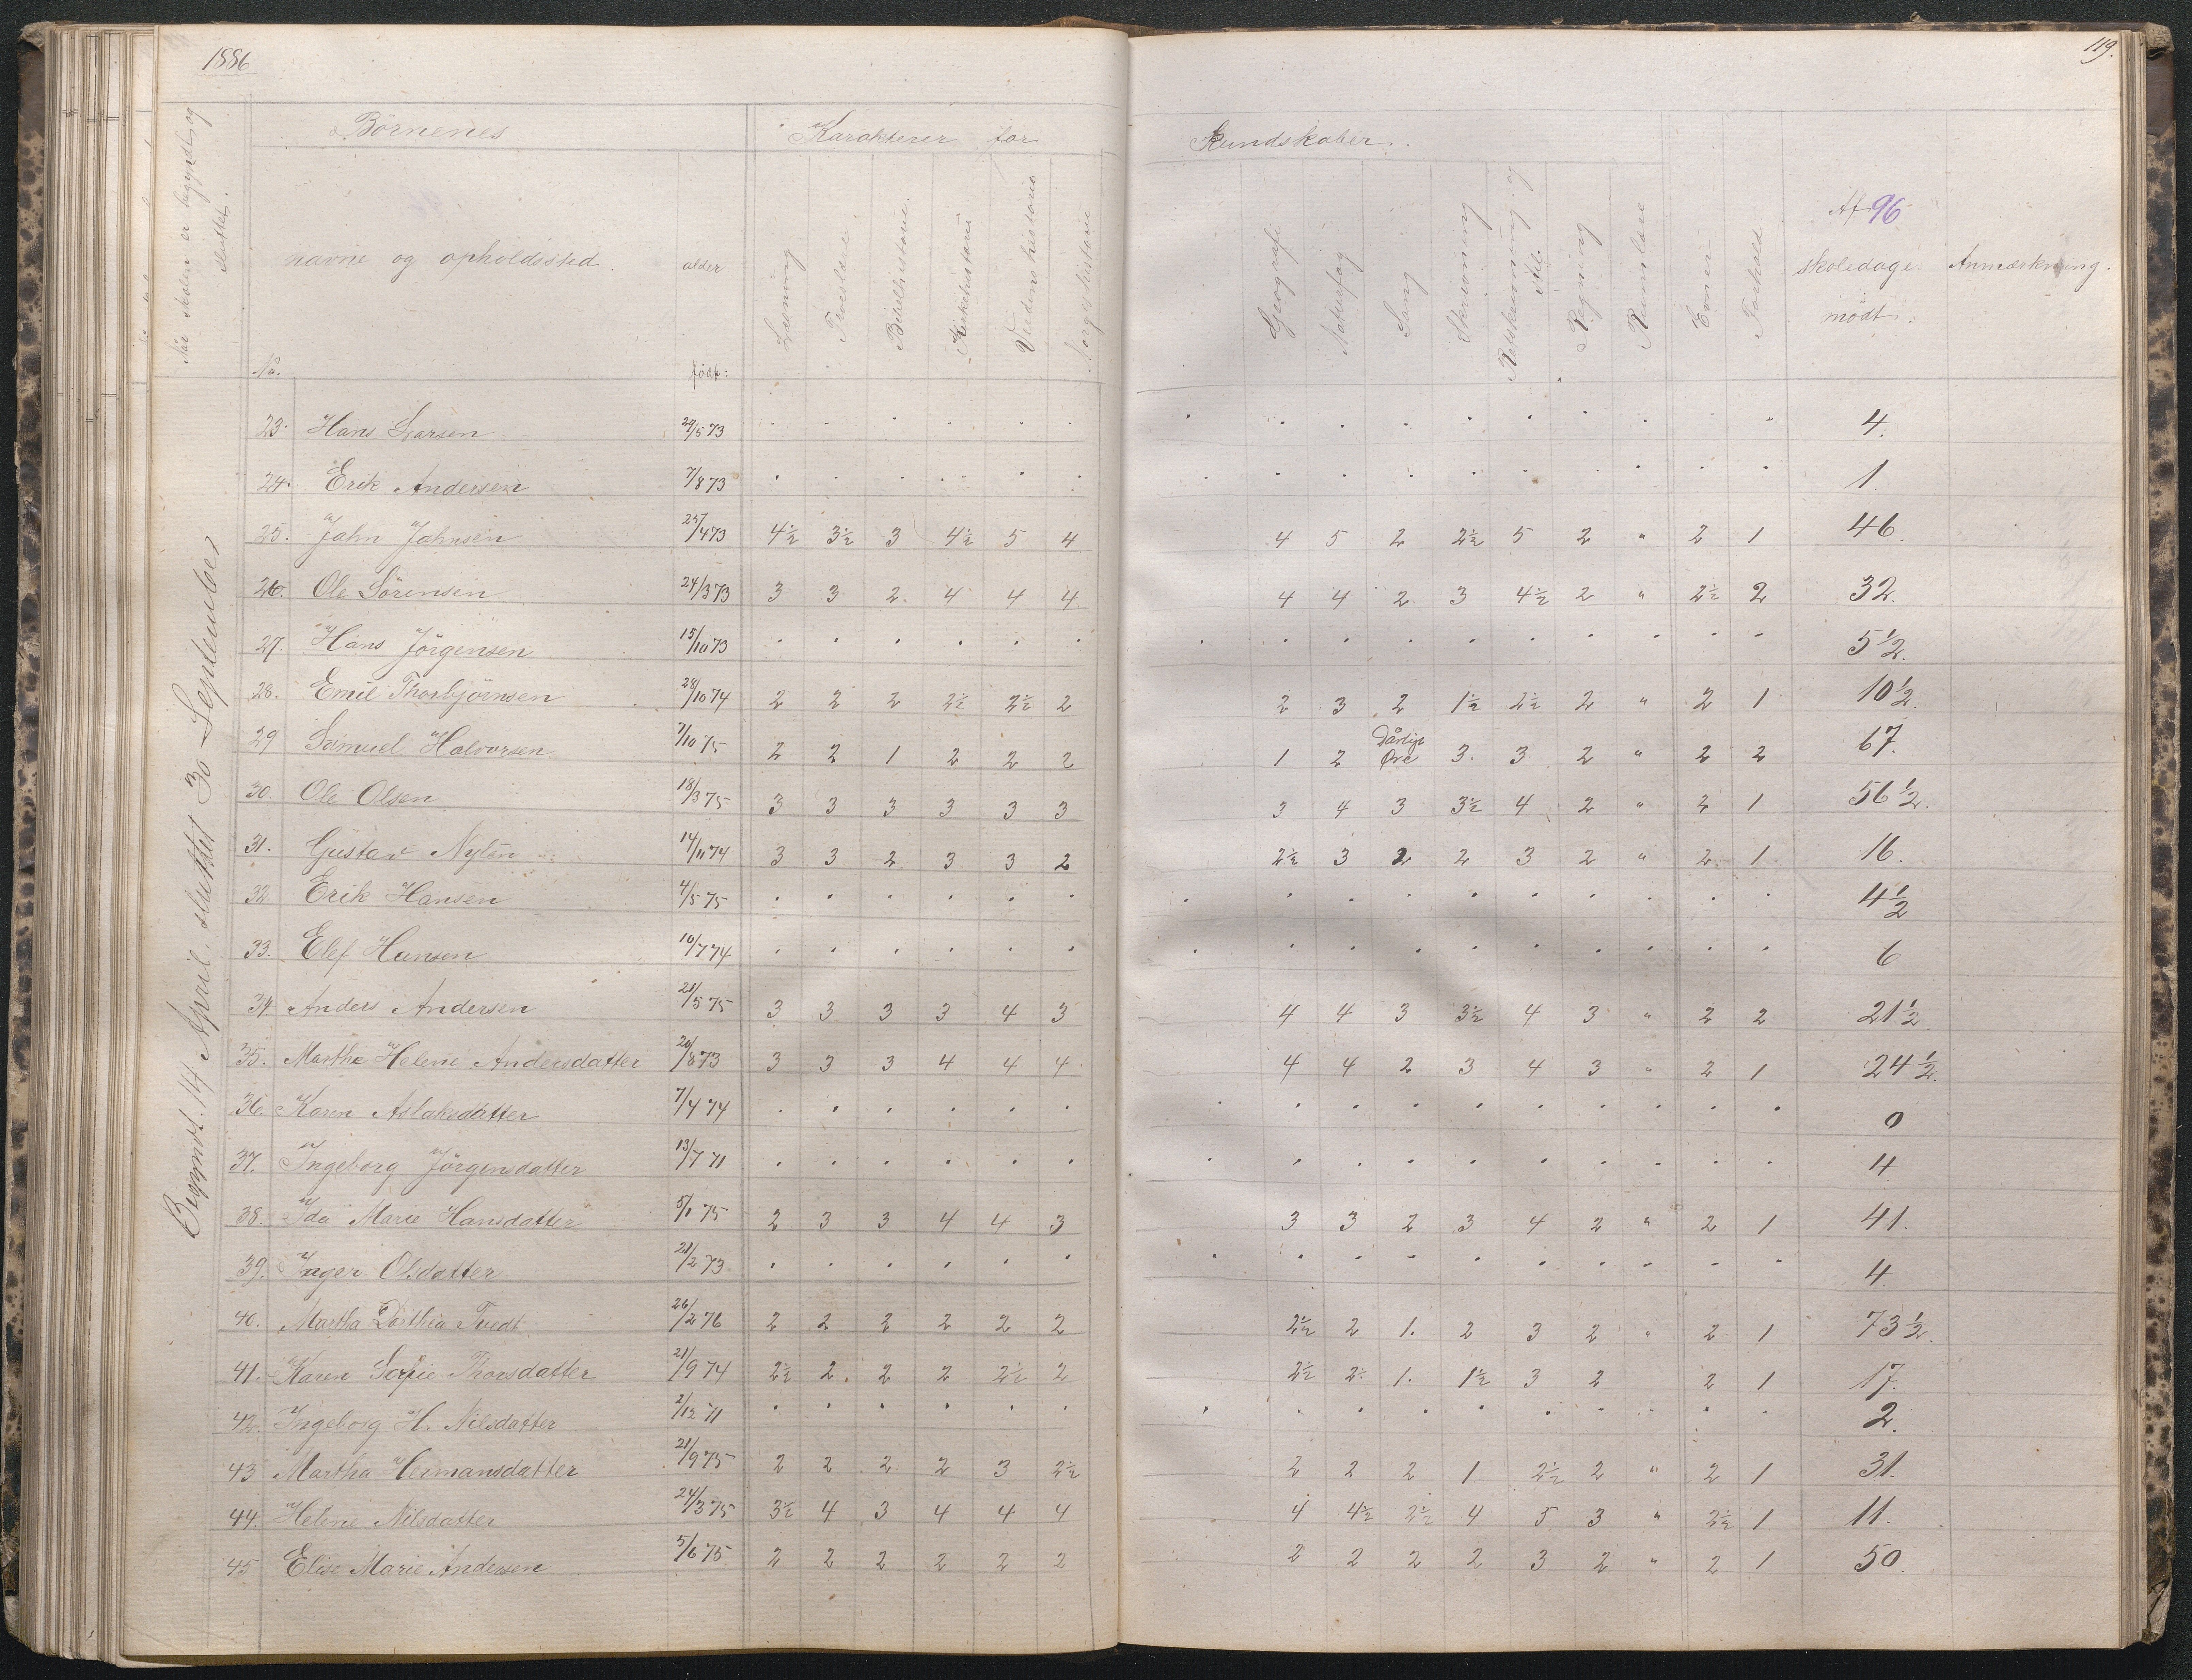 1886
119.
Når skolen er begyndt og sluttet.
Börnenes
Karakterer for
Kundskaber.
Nr.
navne og opholdssted.
alder
født:
Læsning
Troeslære
Bibelhistorie
Kirkehistorie
Verdenshistorie
Norgeshistorie
Geografi
Naturfag
Sang
Skrivning
Retskrivning og Stil
Regning
Rumlære
Evner
Forhold
Af 96 skoledage mødt.
Anmærkning.
Begyndt 14 April, sluttet 30 September
23. Hans Larsen 29/5 73 4.
24. Erik Andersen 7/8 73 1
25. Jahn Jahnsen 25/4 73 4½ 3½ 3 4½ 5 4 4 5 2 2½ 5 2 " 2 1 46.
26. Ole Sörensen 24/3 73 3 3 2 4 4 4 4 4 2 3 4½ 2 " 2½ 2 32.
27. Hans Jörgensen 15/10 73 5½.
28. Emil Thorbjörnsen 28/10 74 2 2 2 2½ 2½ 2 2 3 2 1½ 2½ 2 " 2 1 10½.
29 Samuel Halvorsen 7/10 75 2 2 1 2 2 2 1 2 Dårligt Øre 3. 3 2 " 2 2 67.
30. Ole Olsen 18/3 75 3 3 3 3 3 3 3 4 3 3½ 4 2 " 2 1 56½.
31. Gustav Nylén 14/11 74 3 3 2 3 3 2 2½ 3 2 2 3 2 " 2 1 16.
32. Erik Hansen 4/5 75 4½
33. Elef Hansen 10/7 74 6
34 Anders Andersen 21/5 75 3 3 3 3 4 3 4 4 3 3½ 4 3 " 2 2 21½
35. Marthe Helene Andersdatter 20/8 73 3 3 3 4 4 4 4 4 2 3 4 3 " 2 1 24½.
36. Karen Aslaksdatter 7/4 74 0
37. Ingeborg Jörgensdatter 13/7 71 4
38. Ida Marie Hansdatter 5/1 75 2 3 3 4 4 3 3 3 2 3 4 2 " 2 1 41.
39. Inger Olsdatter 21/2 73 4.
40. Martha Dorthea Tvedt 26/2 76 2 2 2 2 2 2 2½ 2 1. 2 3 2 " 2 1 73½.
41. Karen Sofie Thorsdatter 21/9 74 2½ 2. 2 2 2½ 2 2½ 2. 1. 1½ 3 2 2 1 17.
42. Ingeborg H. Nilsdatter 2/12 71 2.
43 Martha Hermansdatter 21/9 75 2 2 2 2 3 2½ 2 2 2 1 2½ 2 " 2 1 31.
44. Helene Nilsdatter 24/3 75 3½ 4 3 4 4 4 4 4½ 2½ 4 5 3 " 2½ 1 11.
45 Elise Marie Andersen 5/6 75 2 2 2 2 2 2 2 2 2 2 3 2 " 2 1 50.